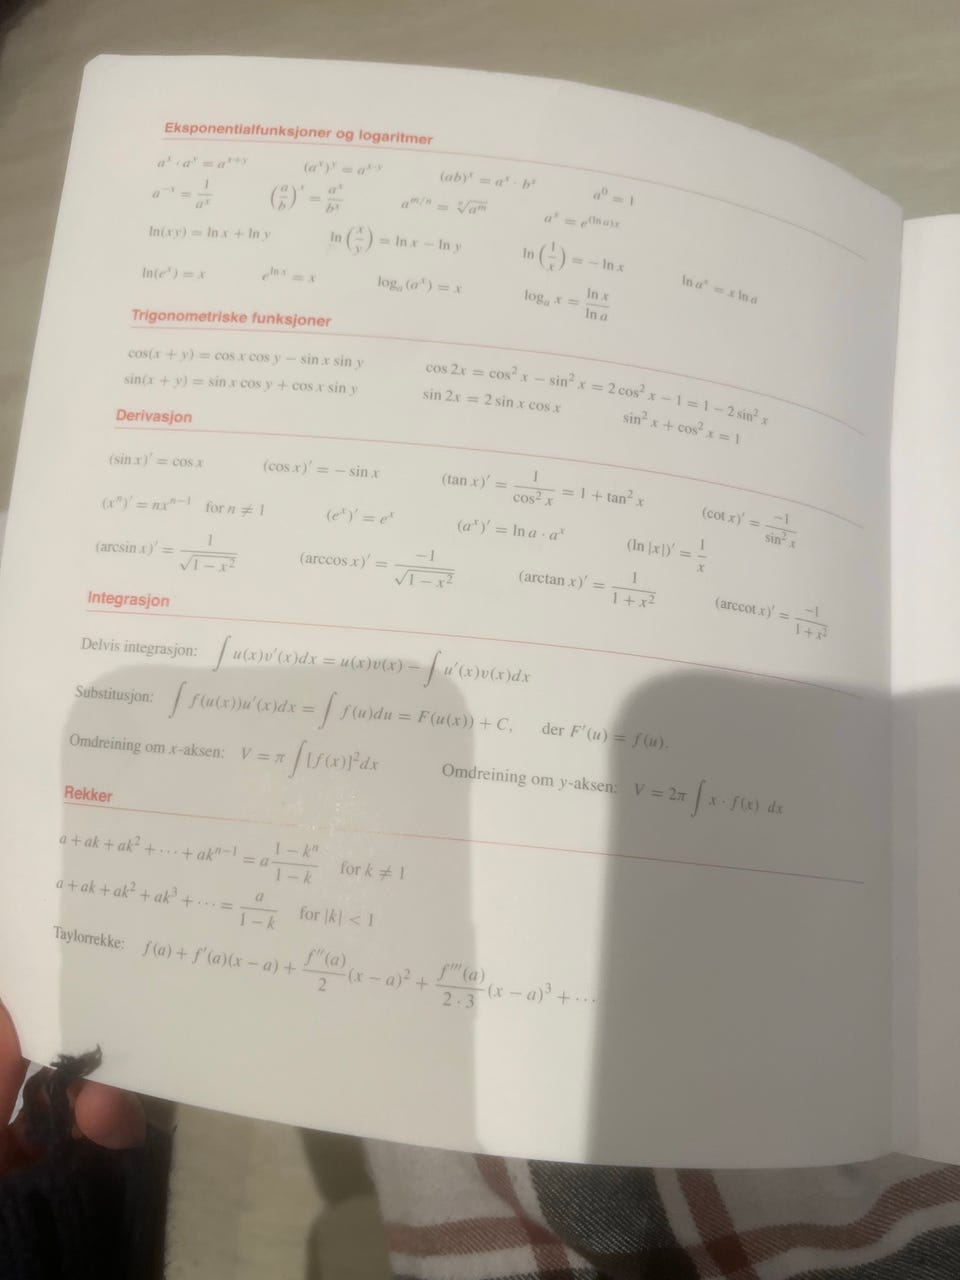 Eksponentialfunksjoner og logaritmer
aˣ · aʸ = aˣ⁺ʸ (aˣ)ʸ = aˣ·ʸ (ab)ˣ = aˣ · bˣ a⁰ = 1
a⁻ˣ = 1/aˣ (a/b)ˣ = aˣ/bˣ a^{m/n} = ⁿ√(aᵐ) aˣ = e^{(ln a)x}
ln(xy) = ln x + ln y ln(x/y) = ln x − ln y ln(1/x) = − ln x ln aˣ = x ln a
ln(eˣ) = x e^{ln x} = x logₐ(aˣ) = x logₐ x = ln x/ln a
Trigonometriske funksjoner
cos(x + y) = cos x cos y − sin x sin y cos 2x = cos² x − sin² x = 2 cos² x − 1 = 1 − 2 sin² x
sin(x + y) = sin x cos y + cos x sin y sin 2x = 2 sin x cos x sin² x + cos² x = 1
Derivasjon
(sin x)′ = cos x (cos x)′ = − sin x (tan x)′ = 1/cos² x = 1 + tan² x (cot x)′ = −1/sin² x
(xⁿ)′ = nxⁿ⁻¹ for n ≠ 1 (eˣ)′ = eˣ (aˣ)′ = ln a · aˣ (ln |x|)′ = 1/x
(arcsin x)′ = 1/√(1 − x²) (arccos x)′ = −1/√(1 − x²) (arctan x)′ = 1/(1 + x²) (arccot x)′ = −1/(1 + x²)
Integrasjon
Delvis integrasjon: ∫ u(x)v′(x)dx = u(x)v(x) − ∫ u′(x)v(x)dx
Substitusjon: ∫ f(u(x))u′(x)dx = ∫ f(u)du = F(u(x)) + C, der F′(u) = f(u).
Omdreining om x-aksen: V = π ∫ [f(x)]²dx Omdreining om y-aksen: V = 2π ∫ x · f(x) dx
Rekker
a + ak + ak² + ⋯ + akⁿ⁻¹ = a (1 − kⁿ)/(1 − k) for k ≠ 1
a + ak + ak² + ak³ + ⋯ = a/(1 − k) for |k| < 1
Taylorrekke: f(a) + f′(a)(x − a) + f″(a)/2 (x − a)² + f‴(a)/(2 · 3) (x − a)³ + ⋯